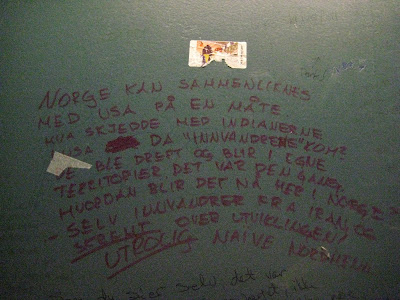 NORGE KAN SAMMENLIKNES
MED USA PÅ EN MÅTE
HVA SKJEDDE MED INDIANERNE
I USA DA "INNVANDRERNE" KOM?
DE BLE DREPT OG BLIR I EGNE
TERRITORIER. DET VAR DEN GANG,
HVORDAN BLIR DET NÅ HER I NORGE?
- SELV INNVANDRER FRA IRAN OG
SKREMT OVER UTVIKLINGEN!
UTROLIG NAIVE NORDMENN.
selv det var